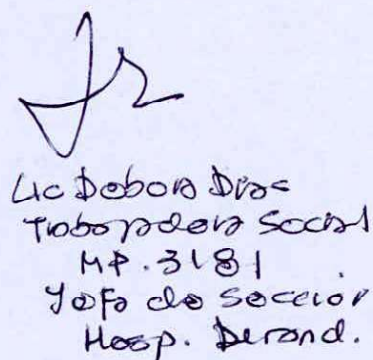 Lic Debora Dias
Trabajadora Social
MP. 3181
Jefa de Sección
Hosp. Durand.